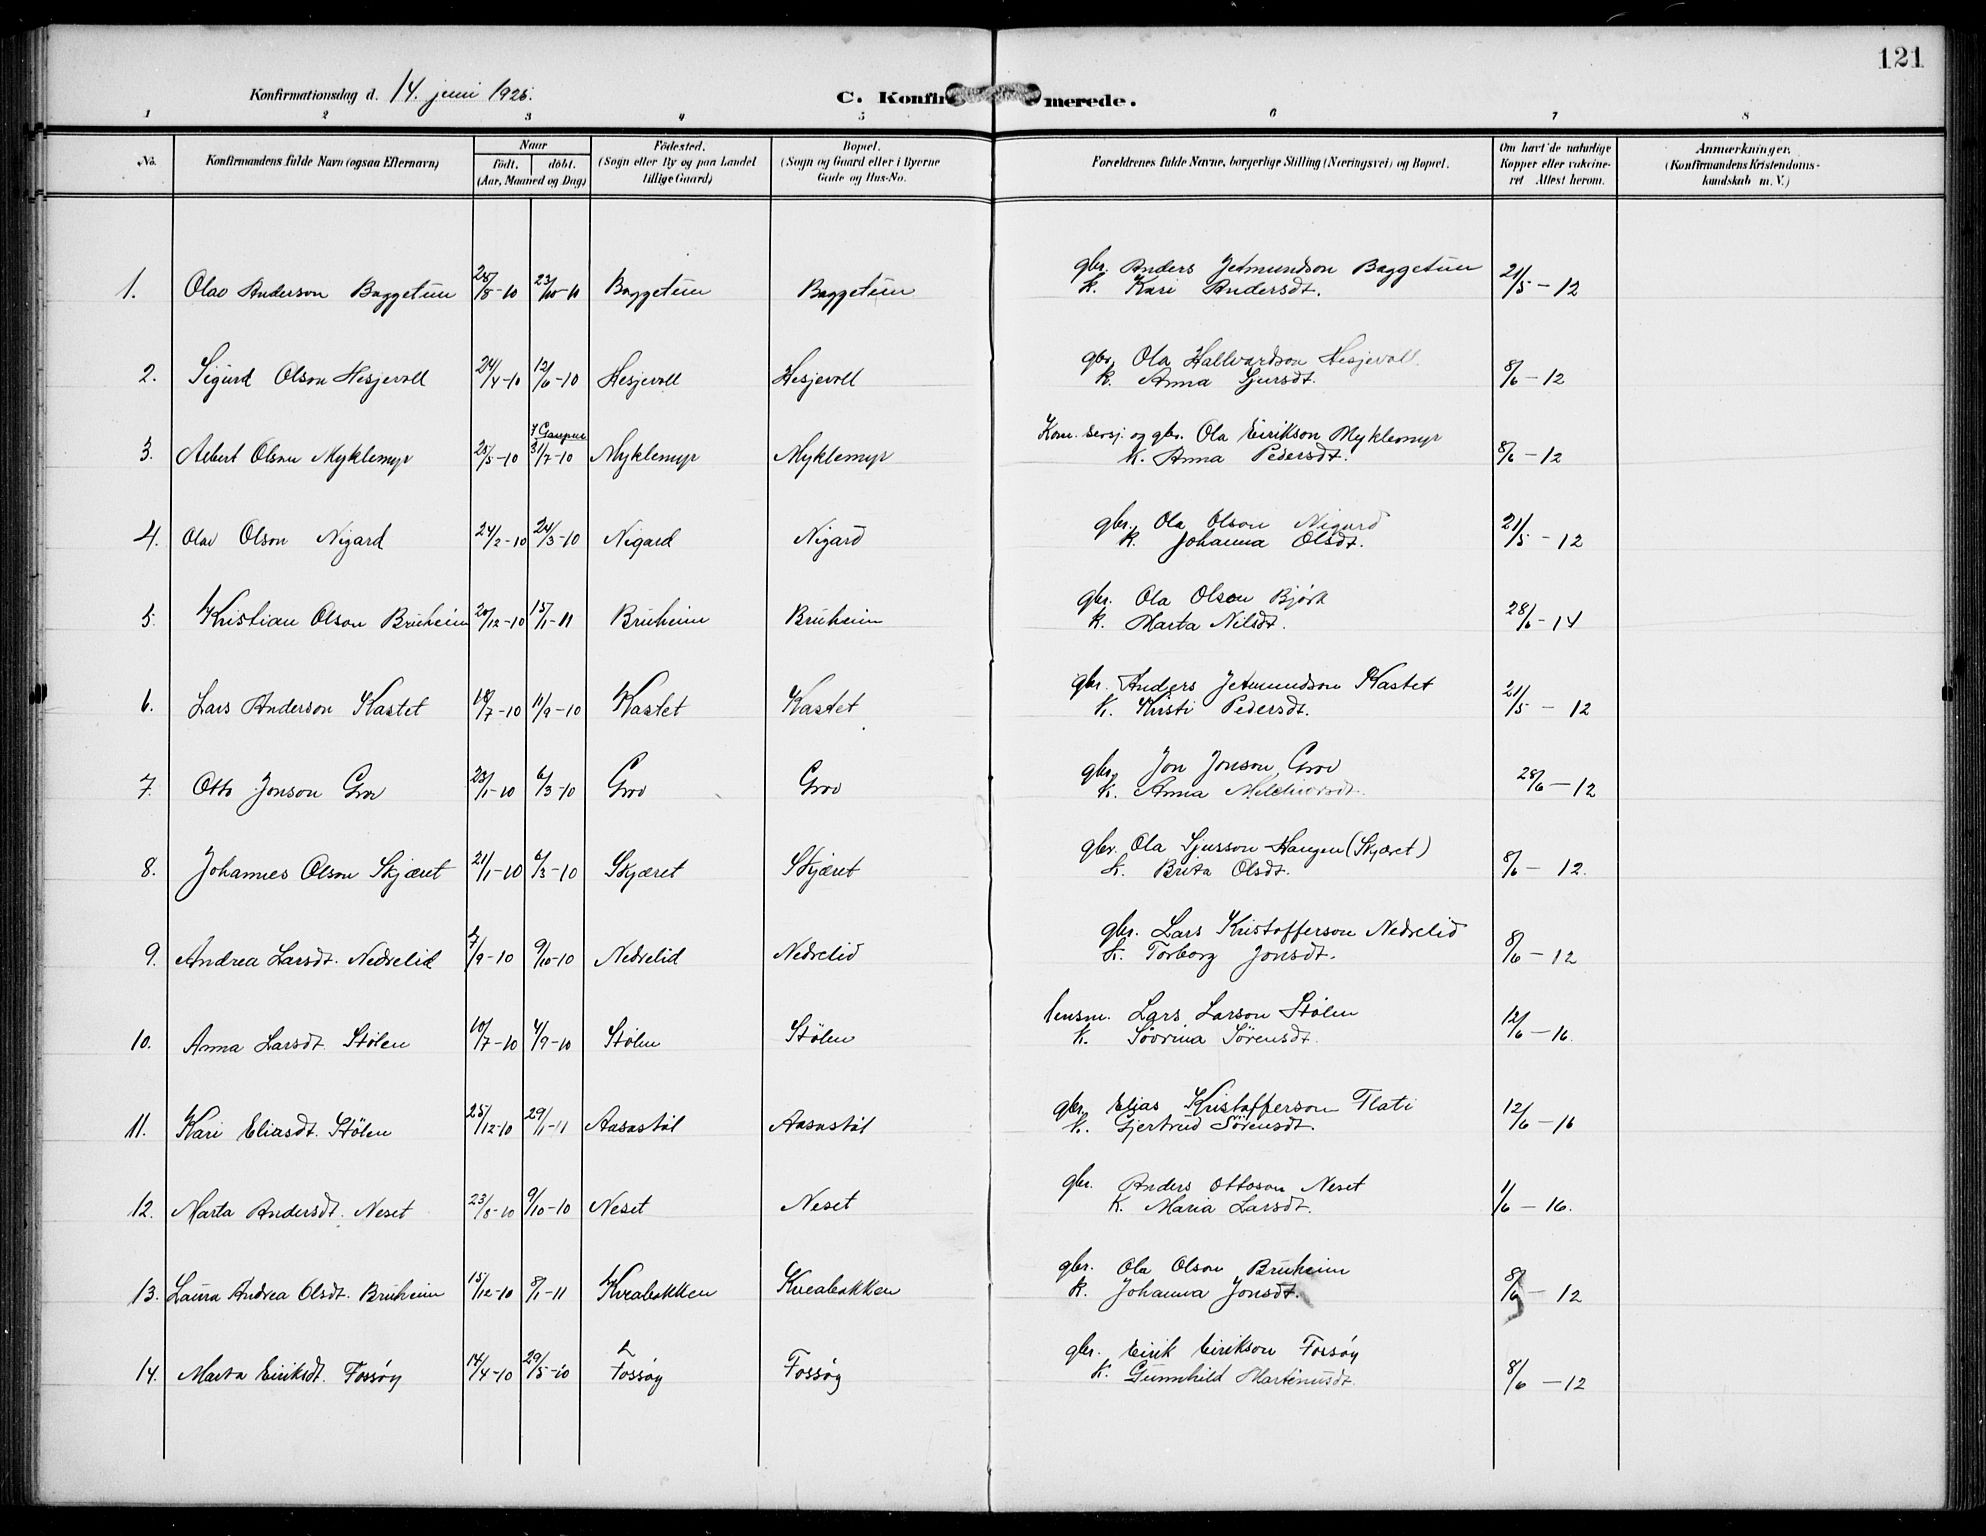 121
Konfirmationsdag d. 14. juni 1925.
C. Konfirmerede.
1 2 3 4 5 6 7 8
No. Konfirmandens fulde Navn (ogsaa Efternavn) Naar født. døbt. (Aar, Maaned og Dag) Fødested. (Sogn eller By og paa Landet tillige Gaard) Bopæl. (Sogn og Gaard eller i Byerne Gade og Hus-No. Forældrenes fulde Navne, borgerlige Stilling (Næringsvei) og Bopæl. Om havt de naturlige Kopper eller vaccineret Attest herom. Anmærkninger. (Konfirmandens Kristendomskundskab m. V.)
gbr. Anders Jetmundson Baggetun
1. Olav Anderson Baggetun 28/8-10 23/10-10 Baggetun Baggetun K. Kari Andersdt. 21/5-12
gbr. Ola Hallvardson Hesjevoll
2. Sigurd Olson Hesjevoll 24/4-10 12/6-10 Hesjevoll Hesjevoll K. Anna Sjursdt. 8/6-12
i Gaupne
Kom. gbr. Ola Eirikson Myklemyr
3. Albert Olson Myklemyr 25/5-10 31/7-10 Myklemyr Myklemyr K. Anna Pedersdt. 8/6-12
gbr. Ola Olson Nigard
4. Olav Olson Nigard 24/2-10 24/3-10 Nigard Nigard K. Johanna Olsdt. 21/5-12
gbr. Ola Olson Bjørk
5. Kristian Olson Bruheim 20/12-10 15/1-11 Bruheim Bruheim K. Marta Nilsdt. 28/6-14
gbr. Anders Jetmundson Kastet
6. Lars Anderson Kastet 18/7-10 11/9-10 Kastet Kastet K. Kristi Pedersdt. 21/5-12
gbr. Jon Jonson Grov
7. Otto Jonson Grov 23/1-10 6/3-10 Grov Grov K. Anna Melchiorsdt. 28/6-12
gbr. Ola Sjursson Haugen (Skjæret)
8. Johannes Olson Skjæret 21/1-10 6/3-10 Skjæret Skjæret K. Brita Olsdt. 8/6-12.
gbr. Lars Kristofferson Nedrelid
9. Andrea Larsdt. Nedrelid 7/9-10 9/10-10 Nedrelid Nedrelid K. Torborg Jonsdt. 8/6-12
lensm. Lars Larson Stølen
10. Anna Larsdt. Stølen 10/7-10 4/9-10 Stølen Stølen K. Søvrina Sørensdt. 12/6-16.
gbr. Elias Kristofferson Flati
11. Kari Eliasdt. Stølen 25/12-10 29/1-11 Aasastøl Aasastøl K. Gjertrud Sørensdt. 12/6-16
gbr. Anders Ottoson Neset
12. Marta Andersdt. Neset 23/8-10 9/10-10 Neset Neset K. Maria Larsdt. 1/6-16.
gbr. Ola Olson Bruheim
13. Laura Andrea Olsdt. Bruheim 15/12-10 8/1-11 Kveabakken Kveabakken K. Johanna Jonsdt. 8/6-12
gbr. Eirik Eirikson Fossøy
14. Marta Eiriksdt. Fossøy 14/4-10 29/5-10 Fossøy Fossøy K. Gunnhild Martinusdt. 8/6-12